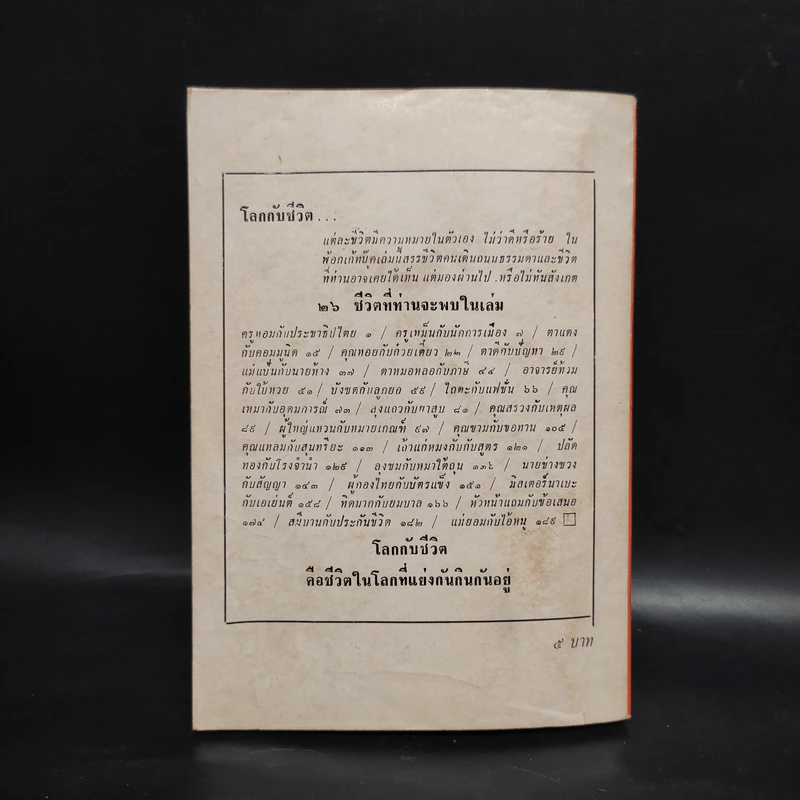 โลกกับชีวิต...
แต่ละชีวิตมีความหมายในตัวเอง ไม่ว่าดีหรือร้าย ใน
พ้อกเก้ทบุ๊คเล่มนี้สรรชีวิตคนเดินถนนธรรมดาและชีวิต
ที่ท่านอาจเคยได้เห็น แต่มองผ่านไป .หรือไม่ทันสังเกต
๒๖ ชีวิตที่ท่านจะพบในเล่ม
ครูหอมกับประชาธิปไตย ๑ / ครูเหม็นกับนักการเมือง ๗ / ตาแดง
กับคอมมูนิต ๑๕ / คุณหอยกับก๋วยเตี๋ยว ๒๓ / ตาดีกับปัญหา ๒๙ /
แม่แป้นกับนายห้าง ๓๗ / ตาหมอหลอกับภาษี ๔๔ / อาจารย์ท้วม
กับใบ้หวย ๕๑ / บังชดกับลูกยอ ๕๙ / ไถตะกับแฟชั่น ๖๖ / คุณ
เหมากับอุดมการณ์ ๗๓ / ลุงแถวกับยาสูบ ๘๑ / คุณสรวงกับเหตุผล
๘๙ / ผู้ใหญ่แหวนกับหมายเกณฑ์ ๙๗ / คุณขามกับขอทาน ๑๐๕ /
คุณแหลมกับสุนทรียะ ๑๑๓ / เถ้าแก่หมงกับกับสูตร ๑๒๑ / ปลัด
ทองกับโรงจำนำ ๑๒๙ / ลุงชมกับหมาใต้ถุน ๑๓๖ / นายช่างขวง
กับสัญญา ๑๔๓ / ผู้กองไทยกับบัตรแข็ง ๑๕๑ / มิสเตอร์นาเบะ
กับเอเย่นต์ ๑๕๘ / ทิดมากกับยมบาล ๑๖๖ / หัวหน้าแถมกับข้อเสนอ
๑๗๔ / สมีบานกับประกันชีวิต ๑๘๒ / แม่ยอมกับไอ้หนู ๑๘๙
โลกกับชีวิต
คือชีวิตในโลกที่แย่งกันกินกันอยู่
๕ บาท